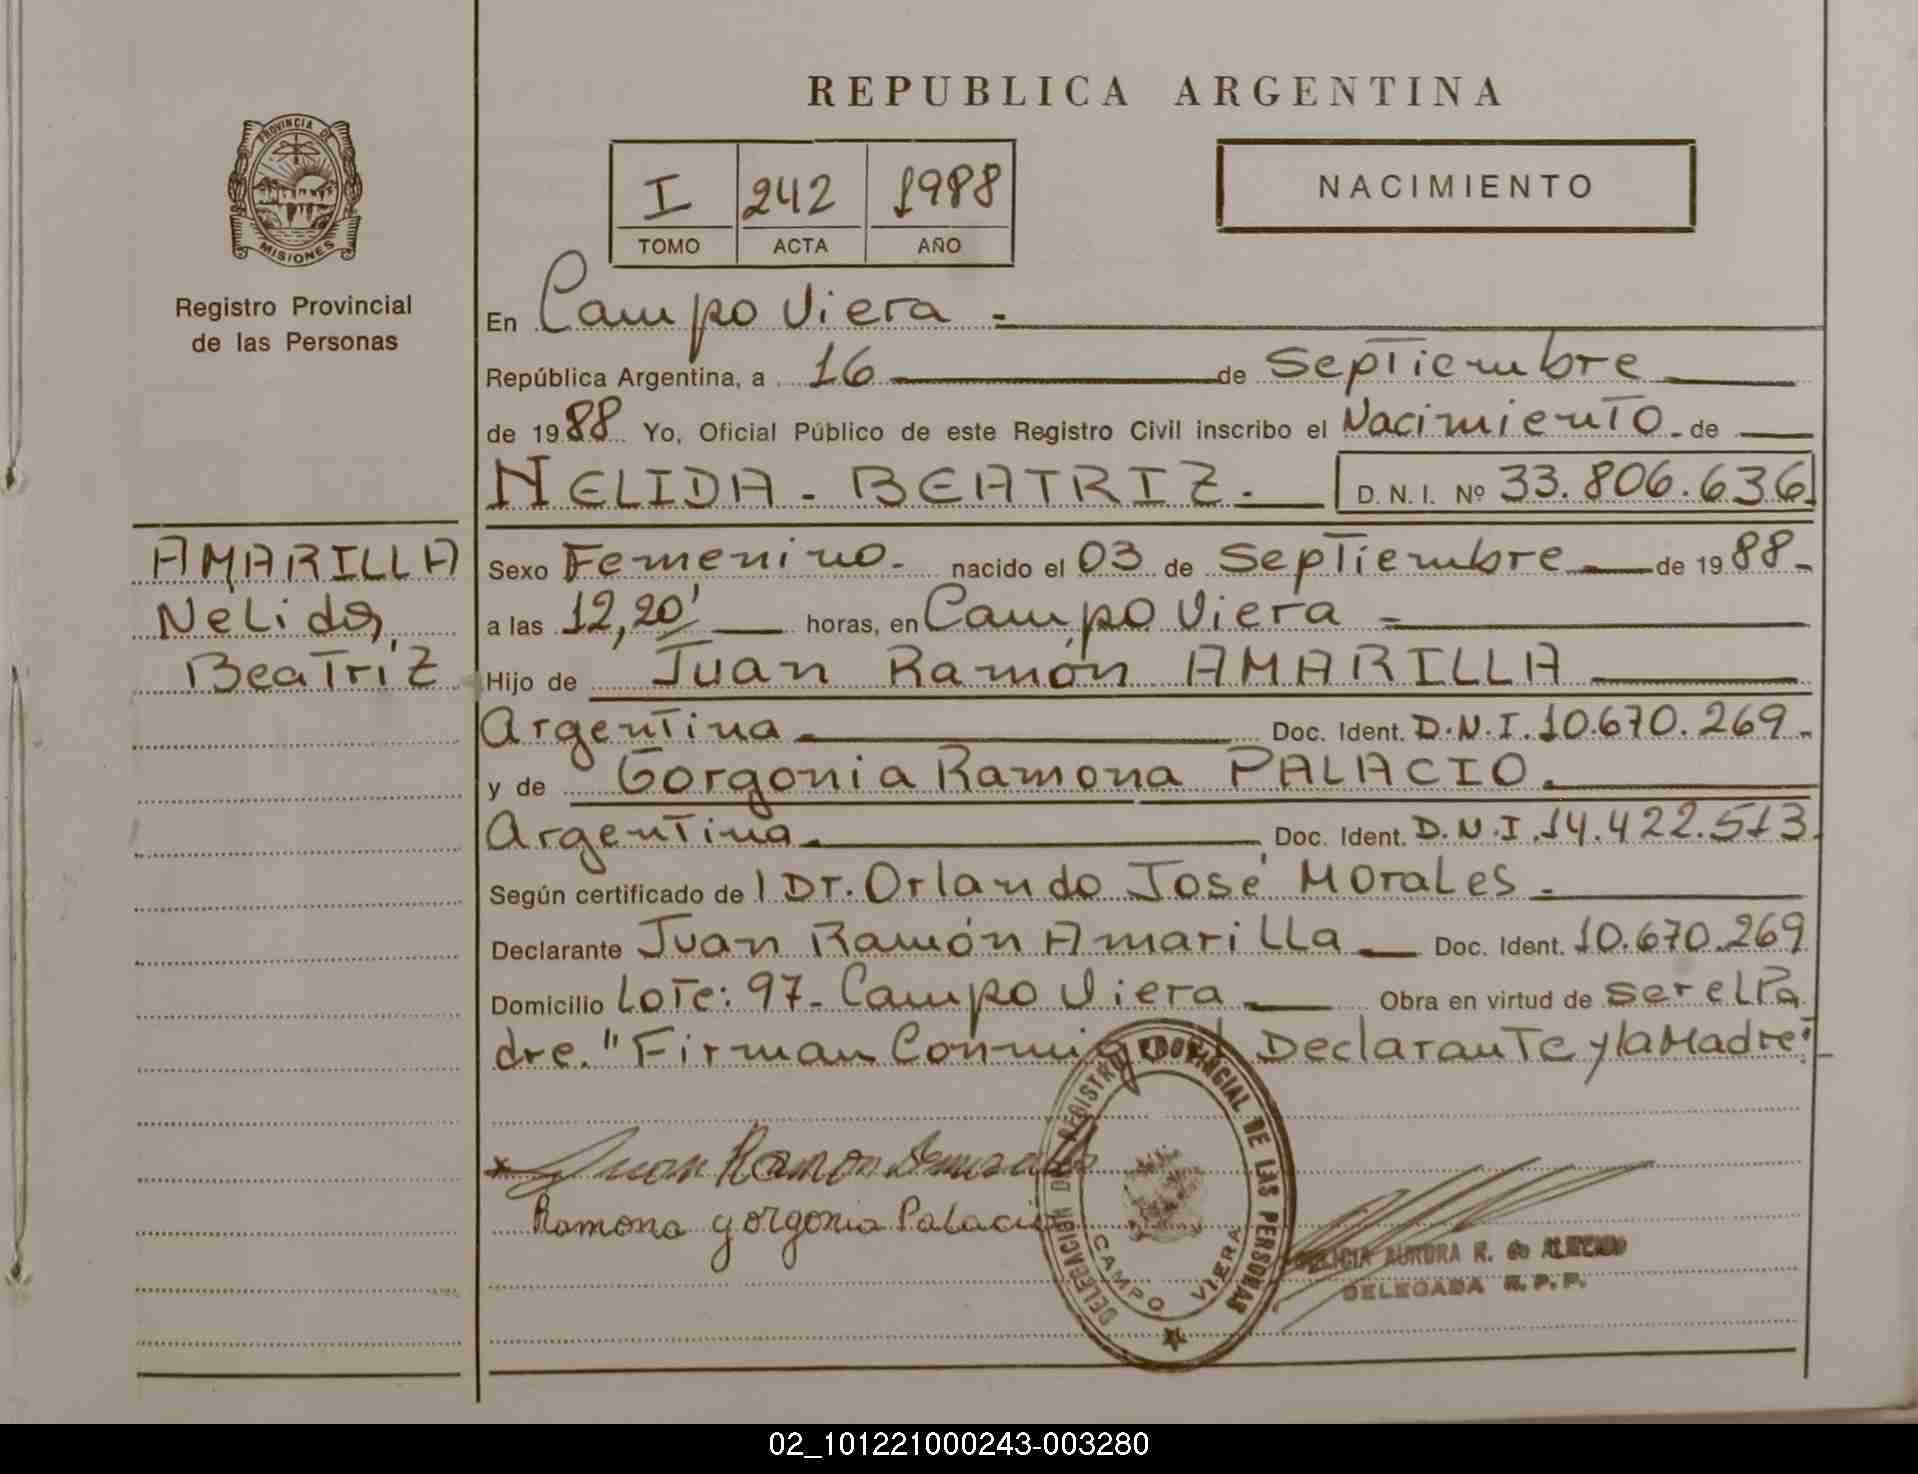 REPUBLICA ARGENTINA
PROVINCIA DE
MISIONES
Registro Provincial
de las Personas
I 242 1988
TOMO ACTA AÑO
NACIMIENTO
En Campo Viera -
República Argentina, a 16 de Septiembre
de 1988 Yo, Oficial Público de este Registro Civil inscribo el Nacimiento - de
NELIDA - BEATRIZ - D. N. I. Nº 33.806.636
AMARILLA
Nélida,
Beatriz
Sexo Femenino - nacido el 03 de Septiembre de 1988 -
a las 12,20' horas, en Campo Viera -
Hijo de Juan Ramón AMARILLA
Argentina Doc. Ident. D.N.I. 10.670.269 -
y de Gorgonia Ramona PALACIO.
Argentina Doc. Ident. D.N.I. 14.422.513.
Según certificado de l Dr. Orlando José Morales -
Declarante Juan Ramón Amarilla Doc. Ident. 10.670.269
Domicilio Lote: 97- Campo Viera Obra en virtud de ser el Pa
dre. "Firman Conmigo el Declarante y la Madre"-
Juan Ramon
Ramona gorgonia Palacio
DELEGACION DEL REGISTRO PROVINCIAL DE LAS PERSONAS
CAMPO VIERA
AURORA R. de
DELEGADA R. P. P.
02_101221000243-003280